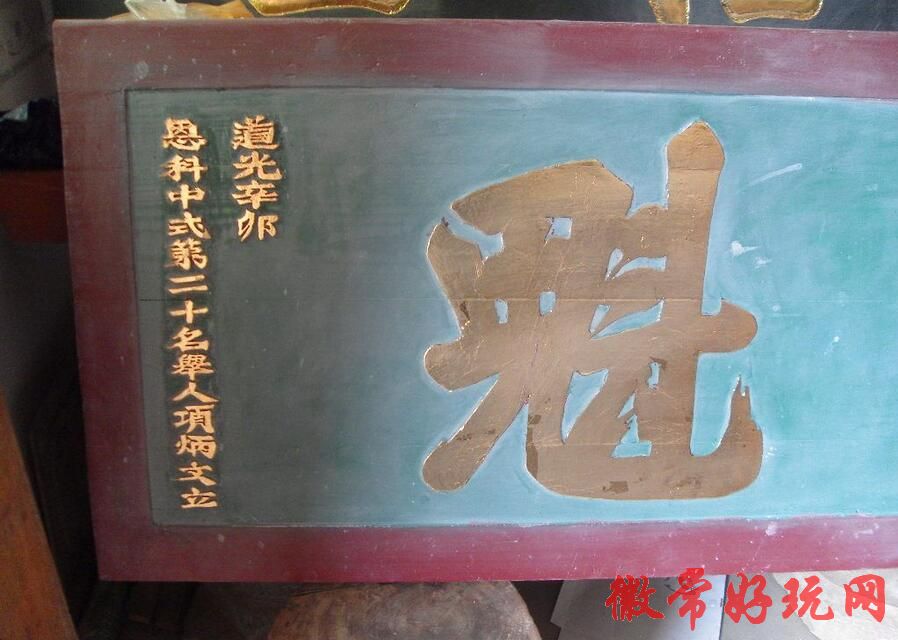 魁
道光辛卯
恩科中式第二十名舉人項炳文立
徽常好玩网